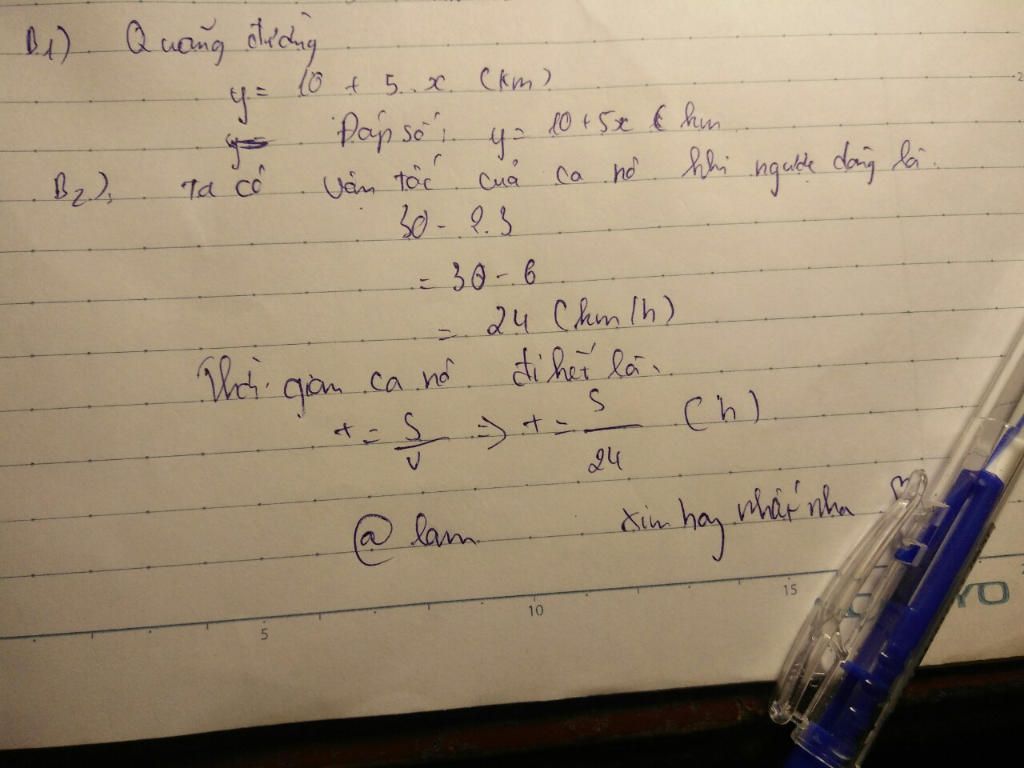 B1) Quãng đường
y = 10 + 5.x (km)
Đáp số: y = 10 + 5x km
B2) Ta có vận tốc của ca nô khi ngược dòng là
30 - 2.3
= 30 - 6
= 24 (km/h)
Thời gian ca nô đi hết là
t = S/v => t = S/24 (h)
@ lam xin hay nhất nha ♡
5 10 15
YO